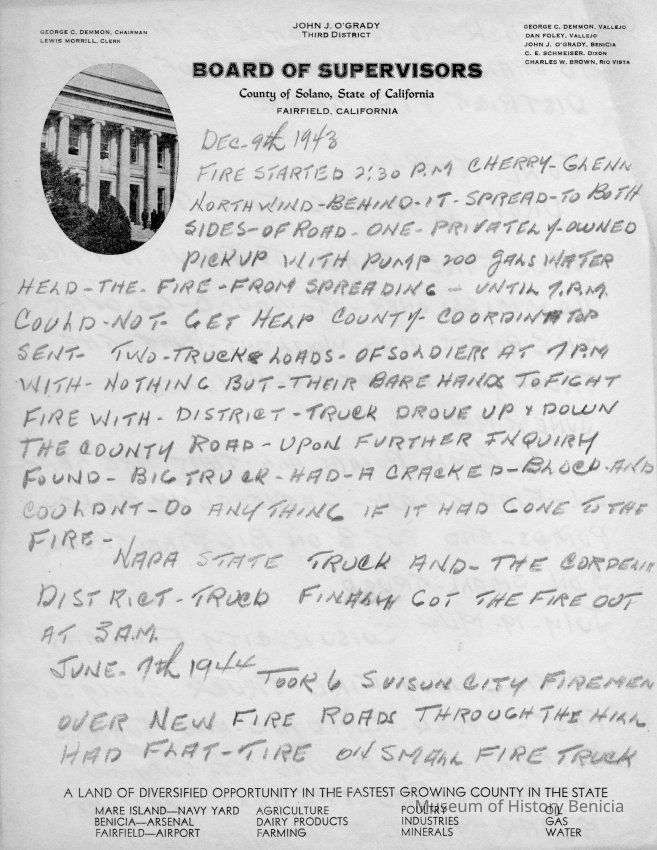 GEORGE C. DEMMON, CHAIRMAN
LEWIS MORRILL, CLERK
JOHN J. O'GRADY
THIRD DISTRICT
GEORGE C. DEMMON, VALLEJO
DAN FOLEY, VALLEJO
JOHN J. O'GRADY, BENICIA
C. E. SCHMEISER, DIXON
CHARLES W. BROWN, RIO VISTA
BOARD OF SUPERVISORS
County of Solano, State of California
FAIRFIELD, CALIFORNIA
DEC-9th 1943
FIRE STARTED 2:30 P.M CHERRY-GLENN
NORTHWIND-BEHIND-IT-SPREAD-TO BOTH
SIDES-OF ROAD-ONE-PRIVATELY-OWNED
PICKUP WITH PUMP 200 GALS WATER
HELD-THE-FIRE-FROM SPREADING-UNTIL 7.P.M.
COULD-NOT-GET HELP COUNTY-COORDINATOR
SENT-TWO-TRUCK LOADS-OF SOLDIERS AT 7 PM
WITH-NOTHING BUT-THEIR BARE HANDS TO FIGHT
FIRE WITH-DISTRICT-TRUCK DROVE UP & DOWN
THE COUNTY ROAD-UPON FURTHER INQUIRY
FOUND-BIG TRUCK-HAD-A CRACKED-BLOCK-AND
COULDNT-DO ANYTHING IF IT HAD GONE TO THE
FIRE-
NAPA STATE TRUCK AND-THE CORDELIA
DISTRICT-TRUCD FINALLY GOT THE FIRE OUT
AT 3 A.M.
JUNE-7th 1944 TOOK 6 SUISUN CITY FIREMEN
OVER NEW FIRE ROADS THROUGH THE HILL
HAD FLAT-TIRE ON SMALL FIRE TRUCK
A LAND OF DIVERSIFIED OPPORTUNITY IN THE FASTEST GROWING COUNTY IN THE STATE
MARE ISLAND—NAVY YARD AGRICULTURE POULTRY OIL
BENICIA—ARSENAL DAIRY PRODUCTS INDUSTRIES GAS
FAIRFIELD—AIRPORT FARMING MINERALS WATER
Museum of History Benicia